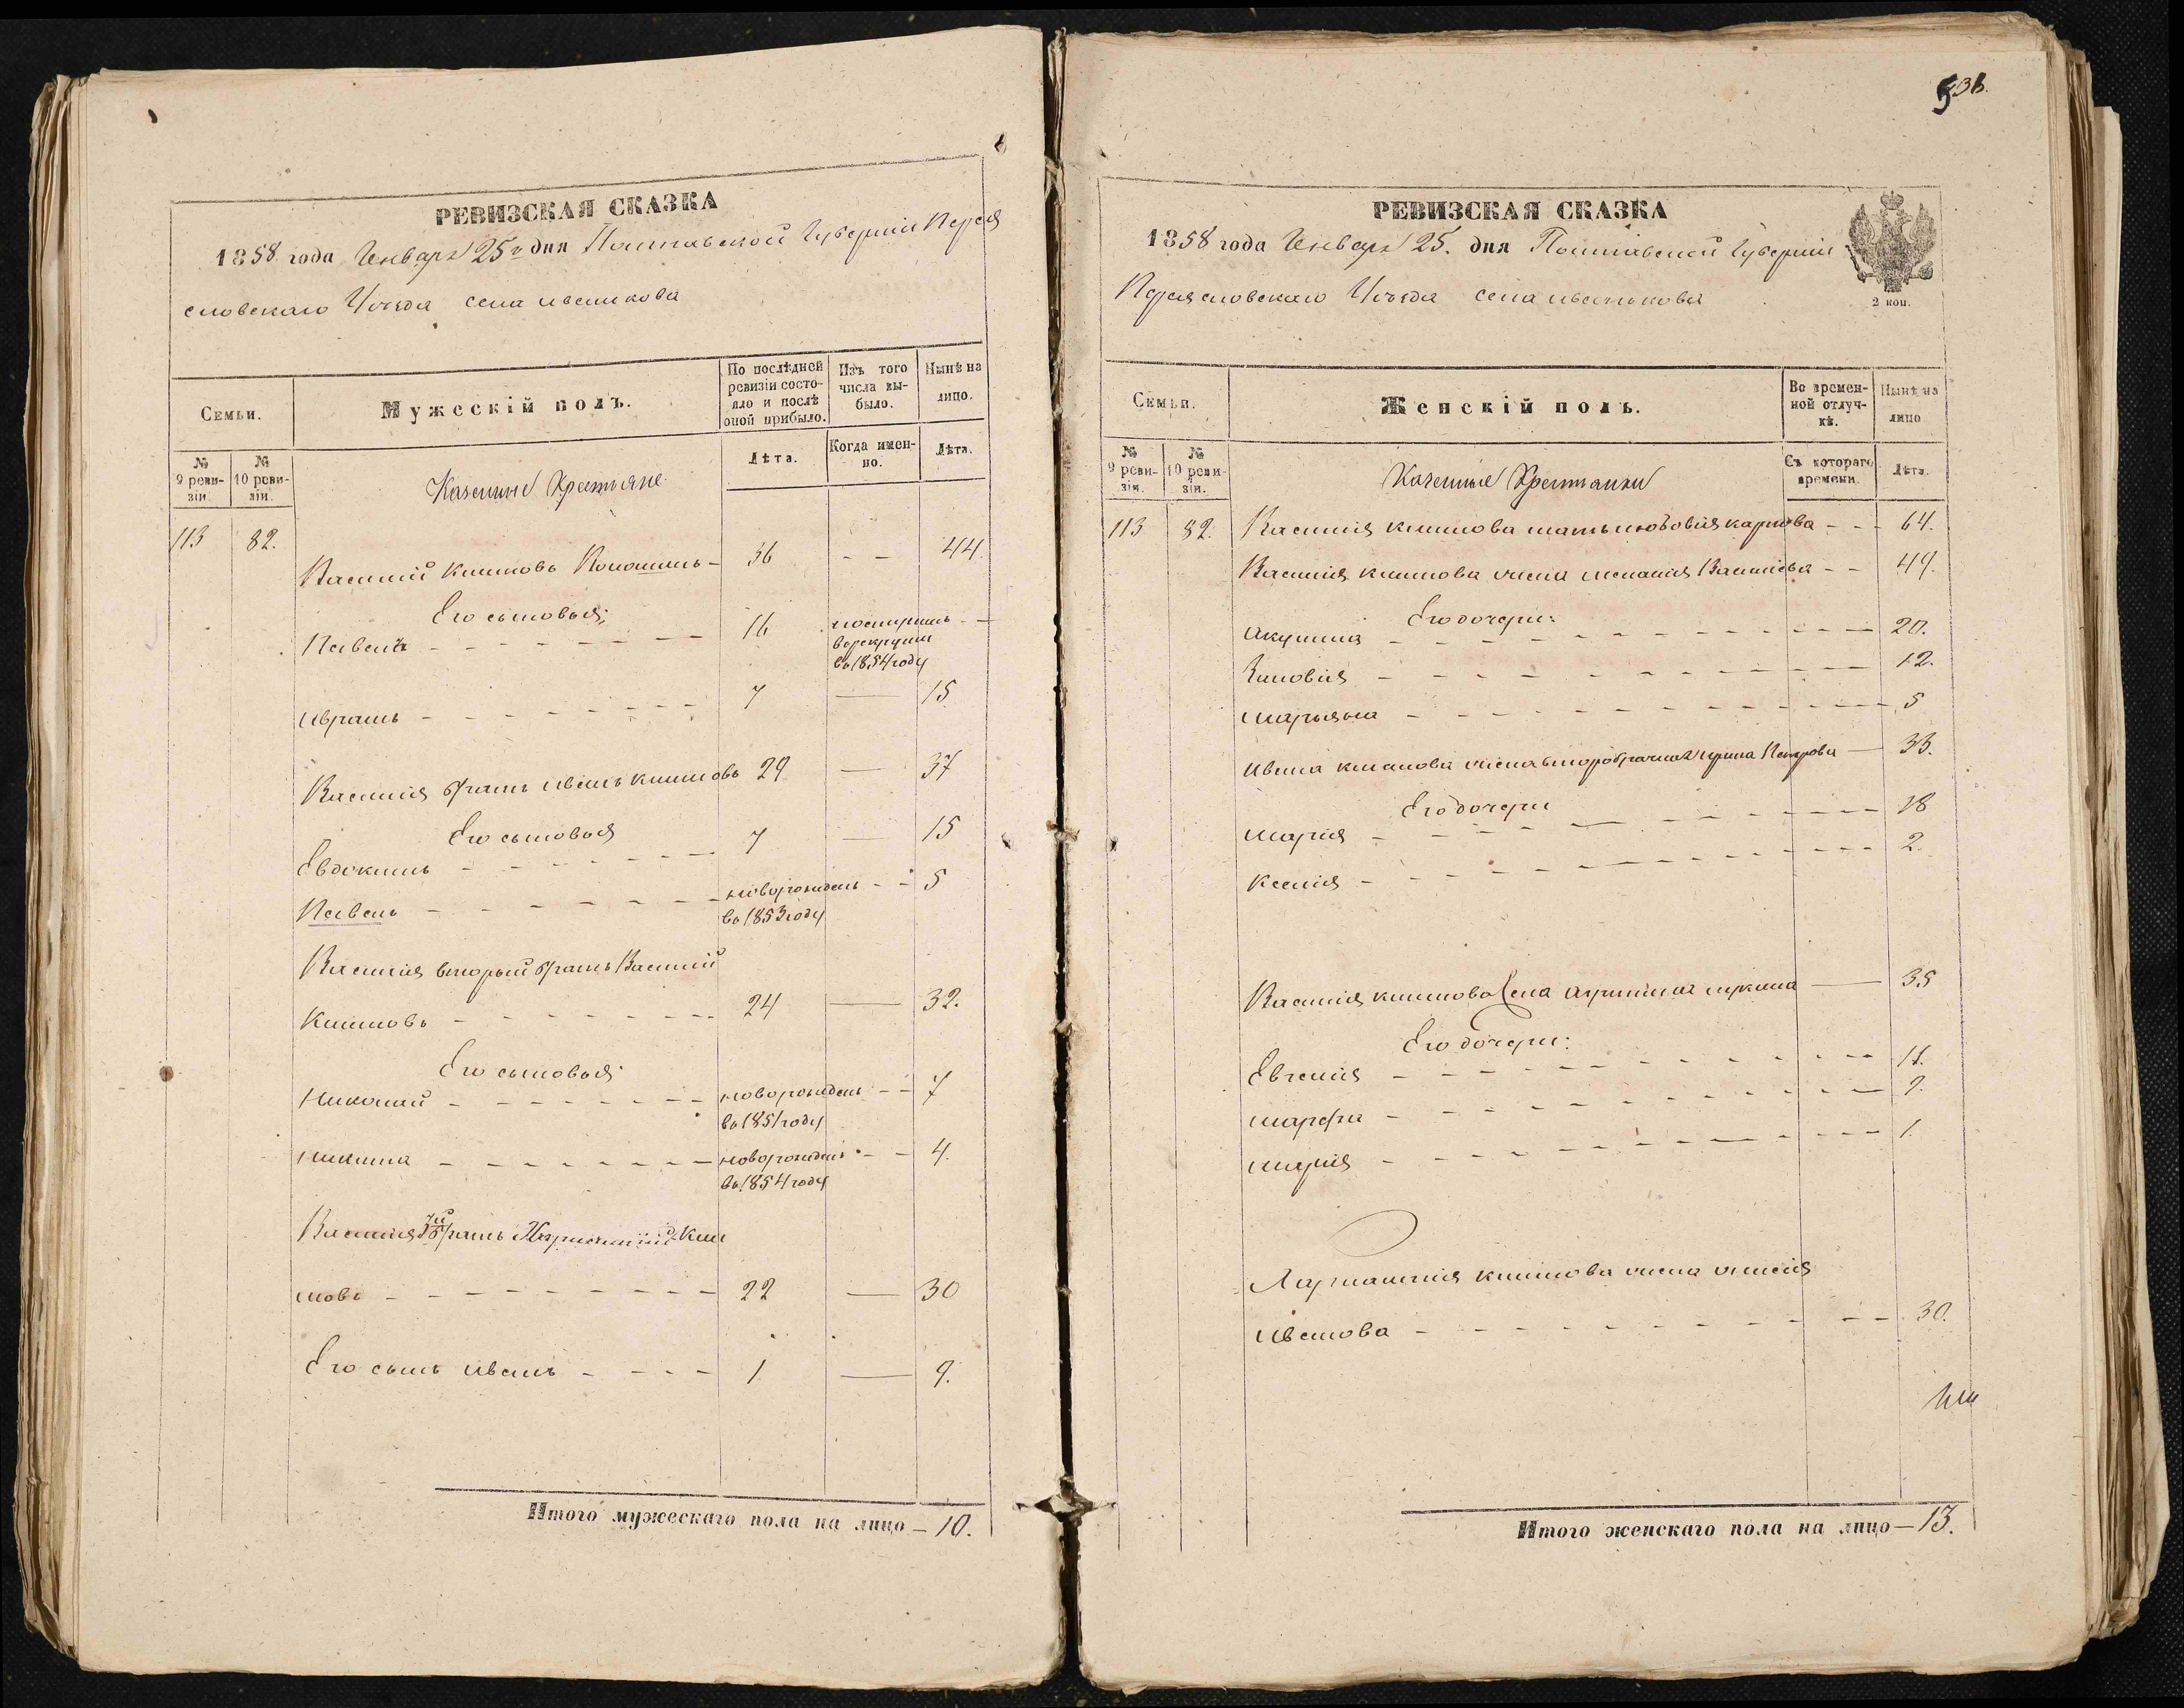 РЕВИЗСКАЯ СКАЗКА
1858 года Генваря 25 дня Полтавской Губерніи Перея
словскаго Уѣзда села иванкова
Семьи.
Мужескій полъ.
По послѣдней ревизіи состояло и послѣ оной прибыло.
Изъ того числа выбыло.
Нынѣ на лицо.
№ 9 ревизіи.
№ 10 ревизіи.
Казенные Крестьяне
Лѣта.
Когда именно.
Лѣта.
113 82.
Василий Климовъ - 36 - - 44.
Его сыновья:
Павелъ - - - - - - 16 - -
в рекруты
въ 1854 году
абрамъ - - - - - - - 7 — 15
Василия братъ иванъ климовъ 29 — 37
Его сыновья
Евдокимъ - - - - - - 7 — 15
Павелъ - - - - - - новорожденъ - - 5
въ 1853 году
Василия вторый братъ Василий
Климовъ - - - - - - - 24 — 32.
Его сыновья
Николай - - - - - - новорожденъ - - 7
въ 1851 году
никита - - - - - - новорожденъ - - 4.
въ 1854 году
Василия 3й братъ Харлампий Кли
мовъ - - - - - - - - 22 — 30
Его сынъ иванъ - - - - 1 — 9.
Итого мужескаго пола на лицо — 10.
536.
РЕВИЗСКАЯ СКАЗКА
1858 года Генваря 25. дня Полтавской Губерніи
Переясловскаго Уѣзда села иванькова
2 коп.
Семьи.
Женскій полъ.
Во временной отлучкѣ.
Нынѣ на лицо
№ 9 ревизіи.
№ 10 ревизіи.
Казенные Крестьянки
Съ котораго времени.
Лѣта.
113 82. Василия климова мать карпова - - - 64.
Василия климова жена мелания Василиева - - 49.
Его дочери:
акулина - - - - - - - - - 20.
Зиновия - - - - - - - - - 12.
марьяна - - - - - - - - - 5
ивана климова жена второбрачная ирина Петрова — 33.
Его дочери
мария - - - - - - - - - 18
ксения - - - - - - - - - 2.
Василия климова жена лукина — 35
Его дочери:
Евгения - - - - - - - - - 11.
марфа - - - - - - - - - 9.
мария - - - - - - - - - 1.
Харлампия климова жена
иванова - - - - - - - - - 30.
Итого женскаго пола на лицо — 13.